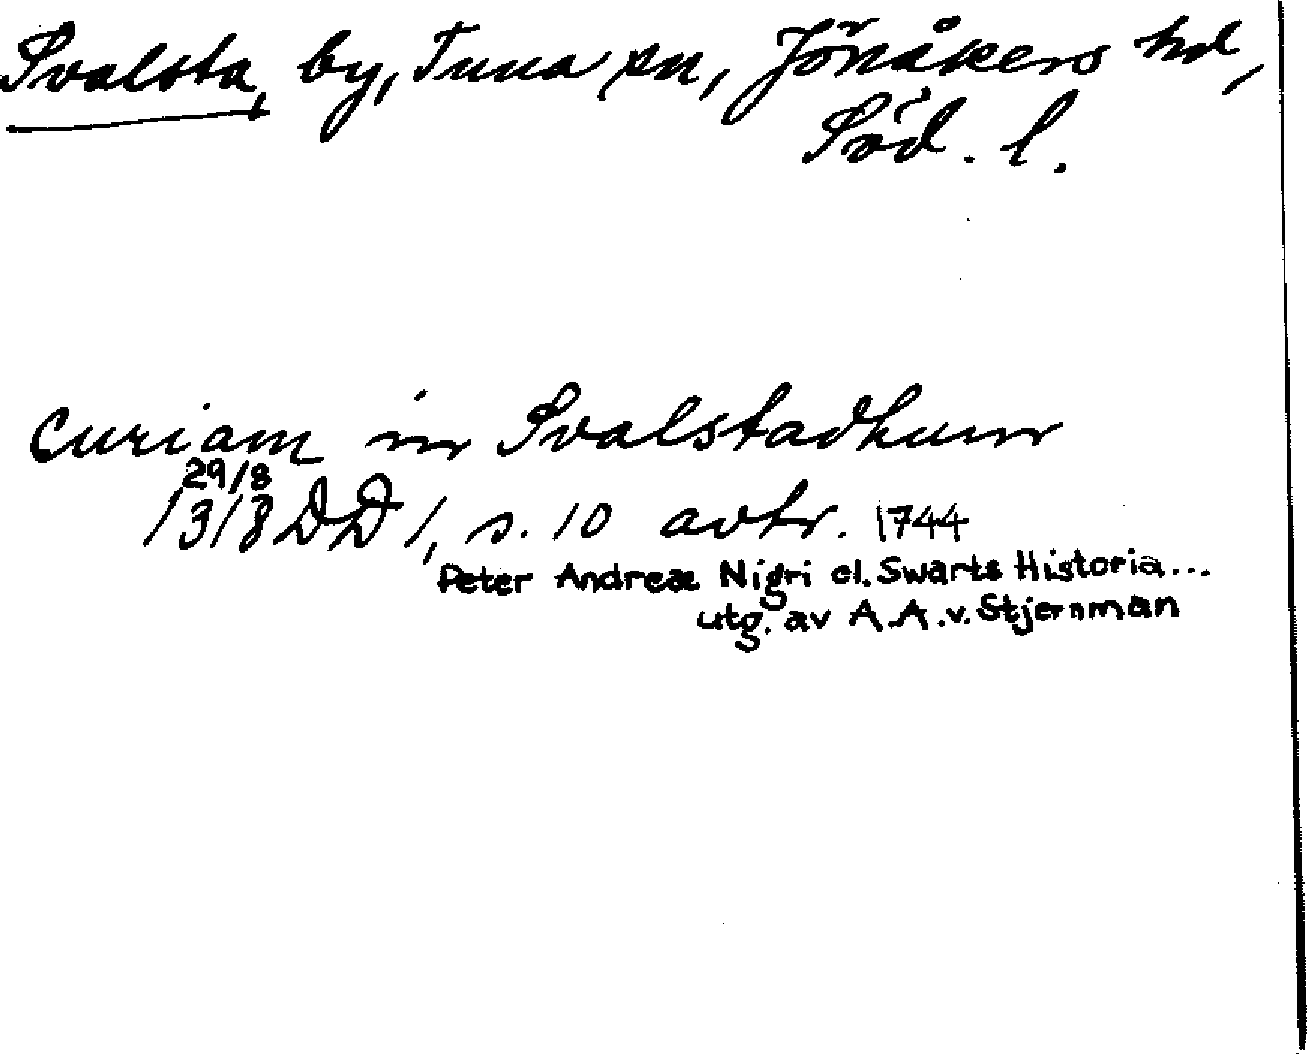 Svalsta, by, Tuna sn, Jönåkers hd,
Söd. l.
curiam in Svalstadhum
29/8
1318 DD 1, s. 10 avtr. 1744
Peter Andreæ Nigri el. Swarts Historia...
utg. av A.A.v. Stjernman